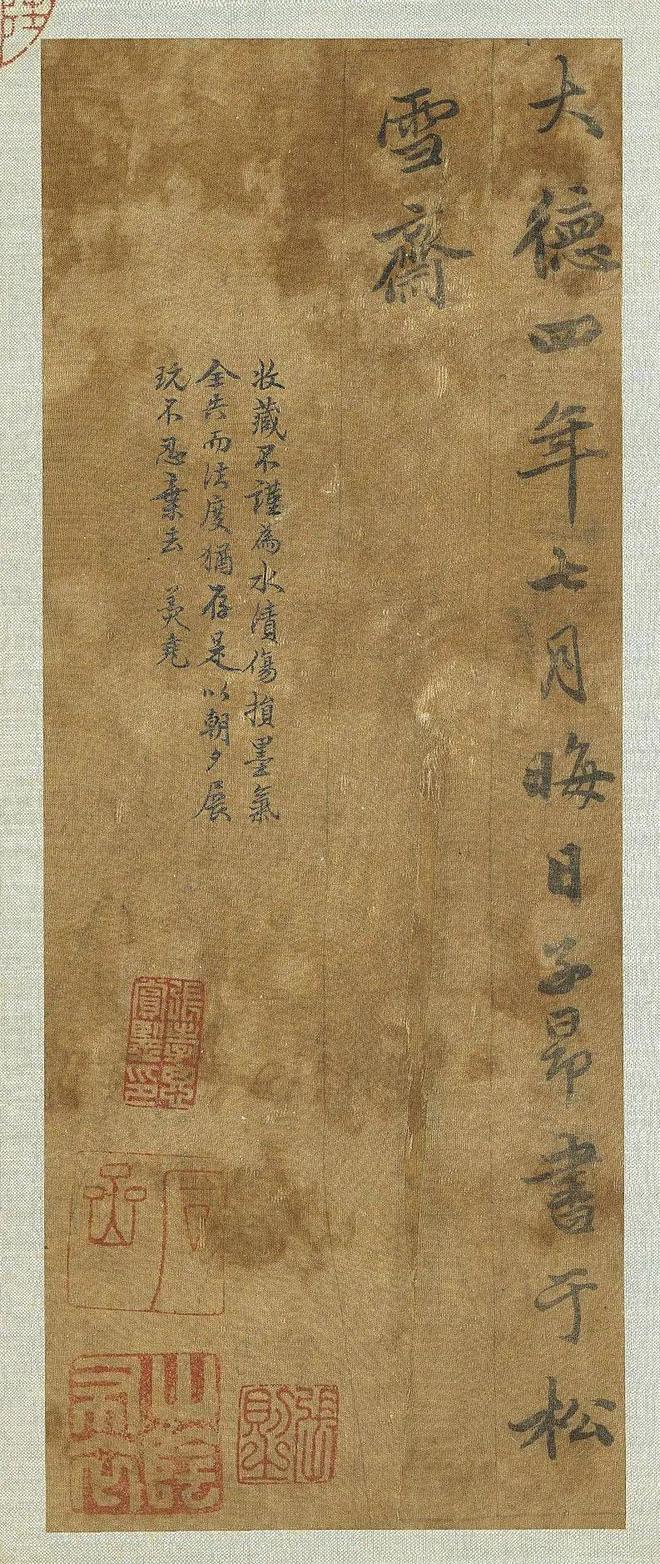 大德四年七月晦日子昂書于松
雪齋
收藏不謹為水漬傷損墨氣
全失而法度猶存是以朝夕展
玩不忍棄去 羙堯